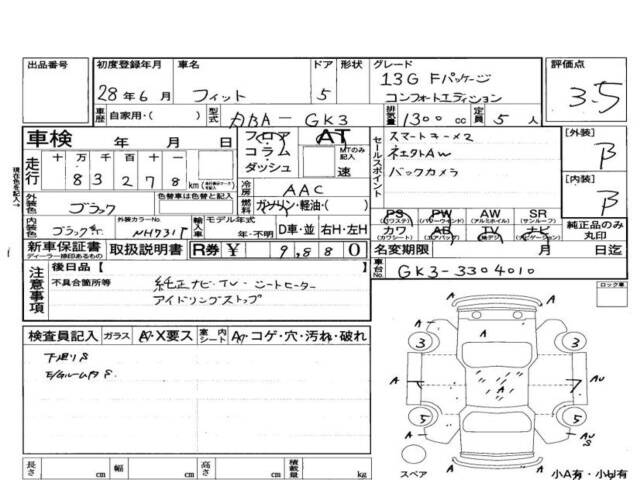 出品番号 初度登録年月 車名 ドア 形状 グレード 評価点
28年6月 フィット 5 13G Fパッケージ コンフォートエディション 3.5
車歴 自家用・( ) 型式 DBA-GK3 排気量 1300cc 定員 5人
車検 年 月 日 フロア コラム ダッシュ AT MTのみ記入 速
走行 十万千百十一 83278 km
冷房 AAC
外装色 ブラック 色替車は色替と記入 燃料 ガソリン・軽油・( )
内装色 ブラック 外装カラーNo. NH731P 輸入車 モデル年式 年・不明 D車・並 右H・左H
セールスポイント スマートキー×2
バックカメラ
[外装] B
[内装] B
PS (パワステ) PW (パワーウインド) AW (アルミホイル) SR (サンルーフ)
カワ (カワシート) AB (エアバッグ) TV ナビ (ナビゲーション)
純正品のみ丸印
新車保証書 ディーラー捺印あるもの 取扱説明書 R券 ¥ 9,880 名変期限 月 日迄
車台No. GK3-3304010
注意事項 後日品 [
不具合箇所等 純正ナビ・TV・シートヒーター
アイドリングストップ
ロック車
検査員記入 ガラス A・X要ス 室内シート A・コゲ・穴・汚れ・破れ
下廻りS
E/gルーム内S
3 3 A A A A A A AU
5 5 A AU S
スペア 小A有・小U有
長さ cm 幅 cm 高さ cm 積載量 kg